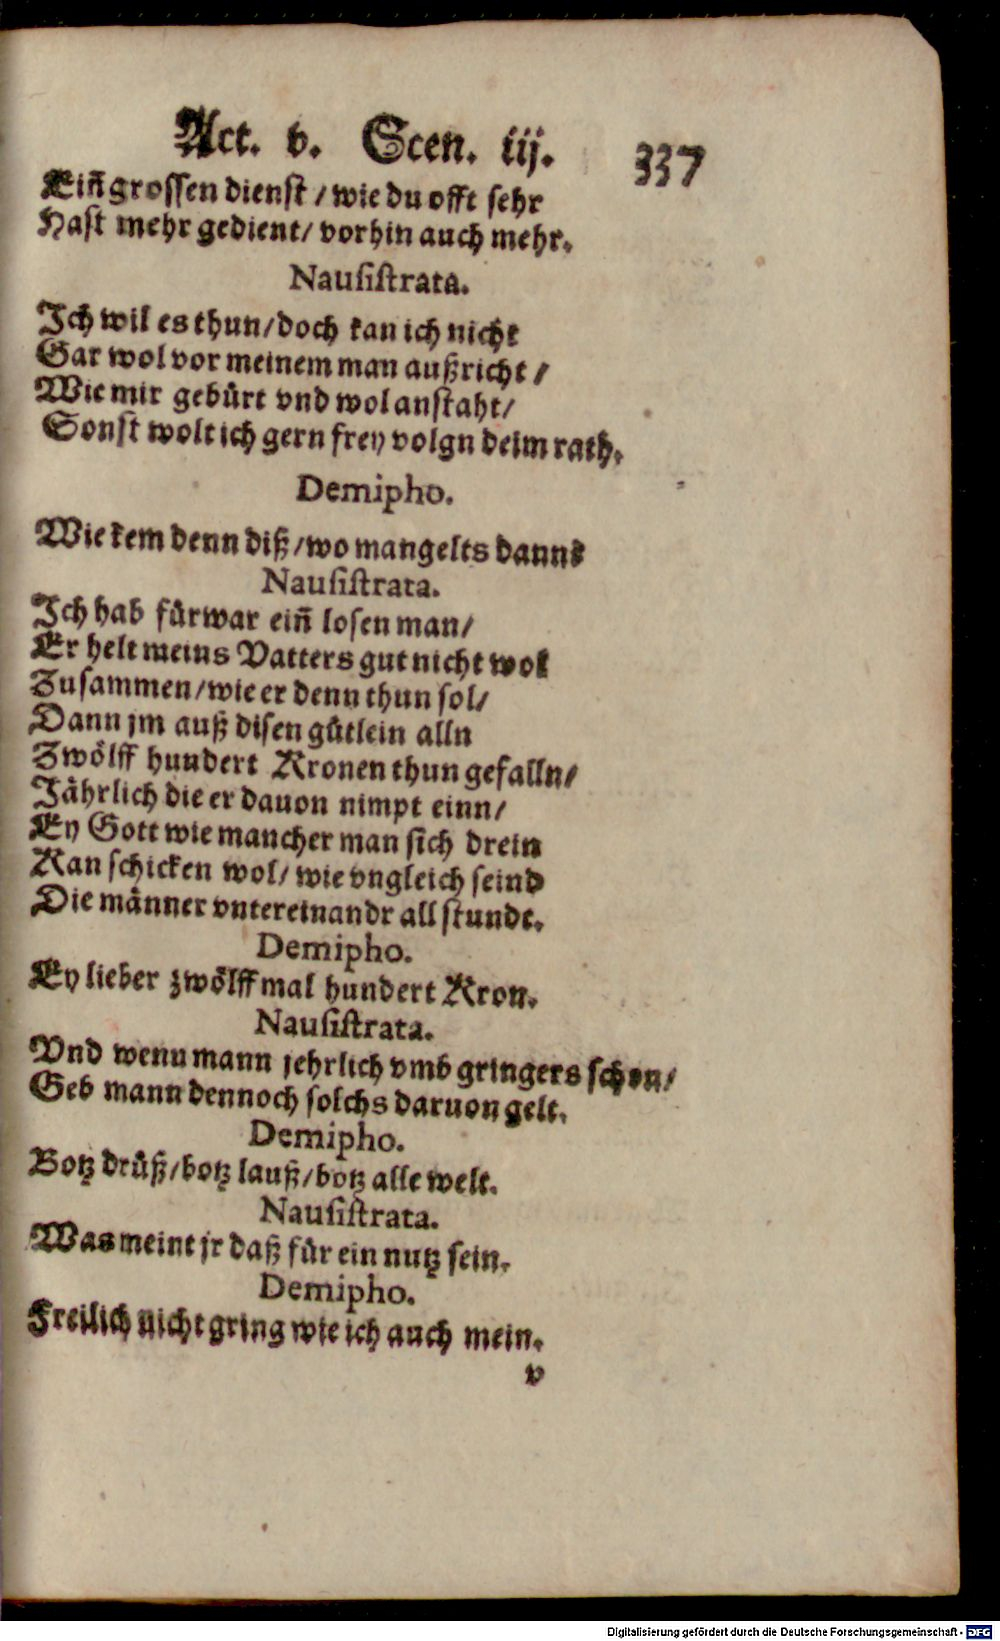 Act. v. Scen. iij. 337
Eiñ grossen dienst / wie du offt sehr
Hast mehr gedient / vorhin auch mehr.
Nausistrata.
Ich wil es thun / doch kan ich nicht
Gar wol vor meinem man außricht /
Wie mir gebürt vnd wol anstaht /
Sonst wolt ich gern frey volgn deim rath.
Demipho.
Wie kem denn diß / wo mangelts dann?
Nausistrata.
Ich hab fürwar eiñ losen man /
Er helt meins Vatters gut nicht wol
Zusammen / wie er denn thun sol /
Dann jm auß disen gütlein alln
Zwölff hundert Kronen thun gefalln /
Jährlich die er dauon nimpt einn /
Ey Gott wie mancher man sich drein
Kan schicken wol / wie vngleich seind
Die männer vntereinandr all stundt.
Demipho.
Ey lieber zwölff mal hundert Kron.
Nausistrata.
Vnd wenn mann jehrlich vmb gringers schon /
Geb mann dennoch solchs daruon gelt.
Demipho.
Botz drüß / botz lauß / botz alle welt.
Nausistrata.
Was meint jr daß für ein nutz sein.
Demipho.
Freilich nicht gring wie ich auch mein.
v
Digitalisierung gefördert durch die Deutsche Forschungsgemeinschaft - DFG